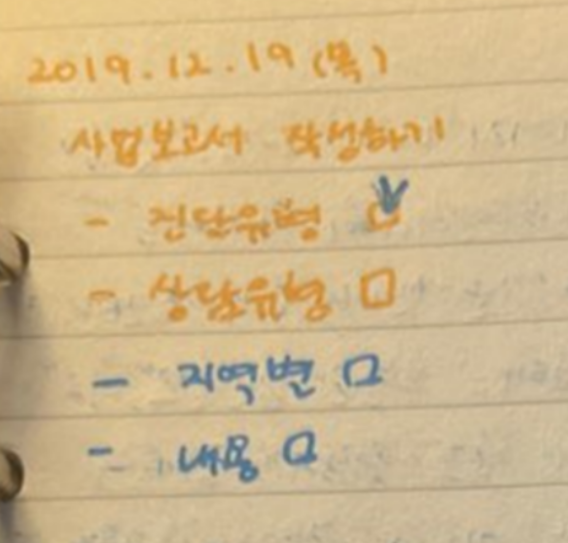 2019.12.19 (목)
사업보고서 작성하기
- 진단유형 ☑
- 상담유형 □
- 지역변 □
- 내용 □